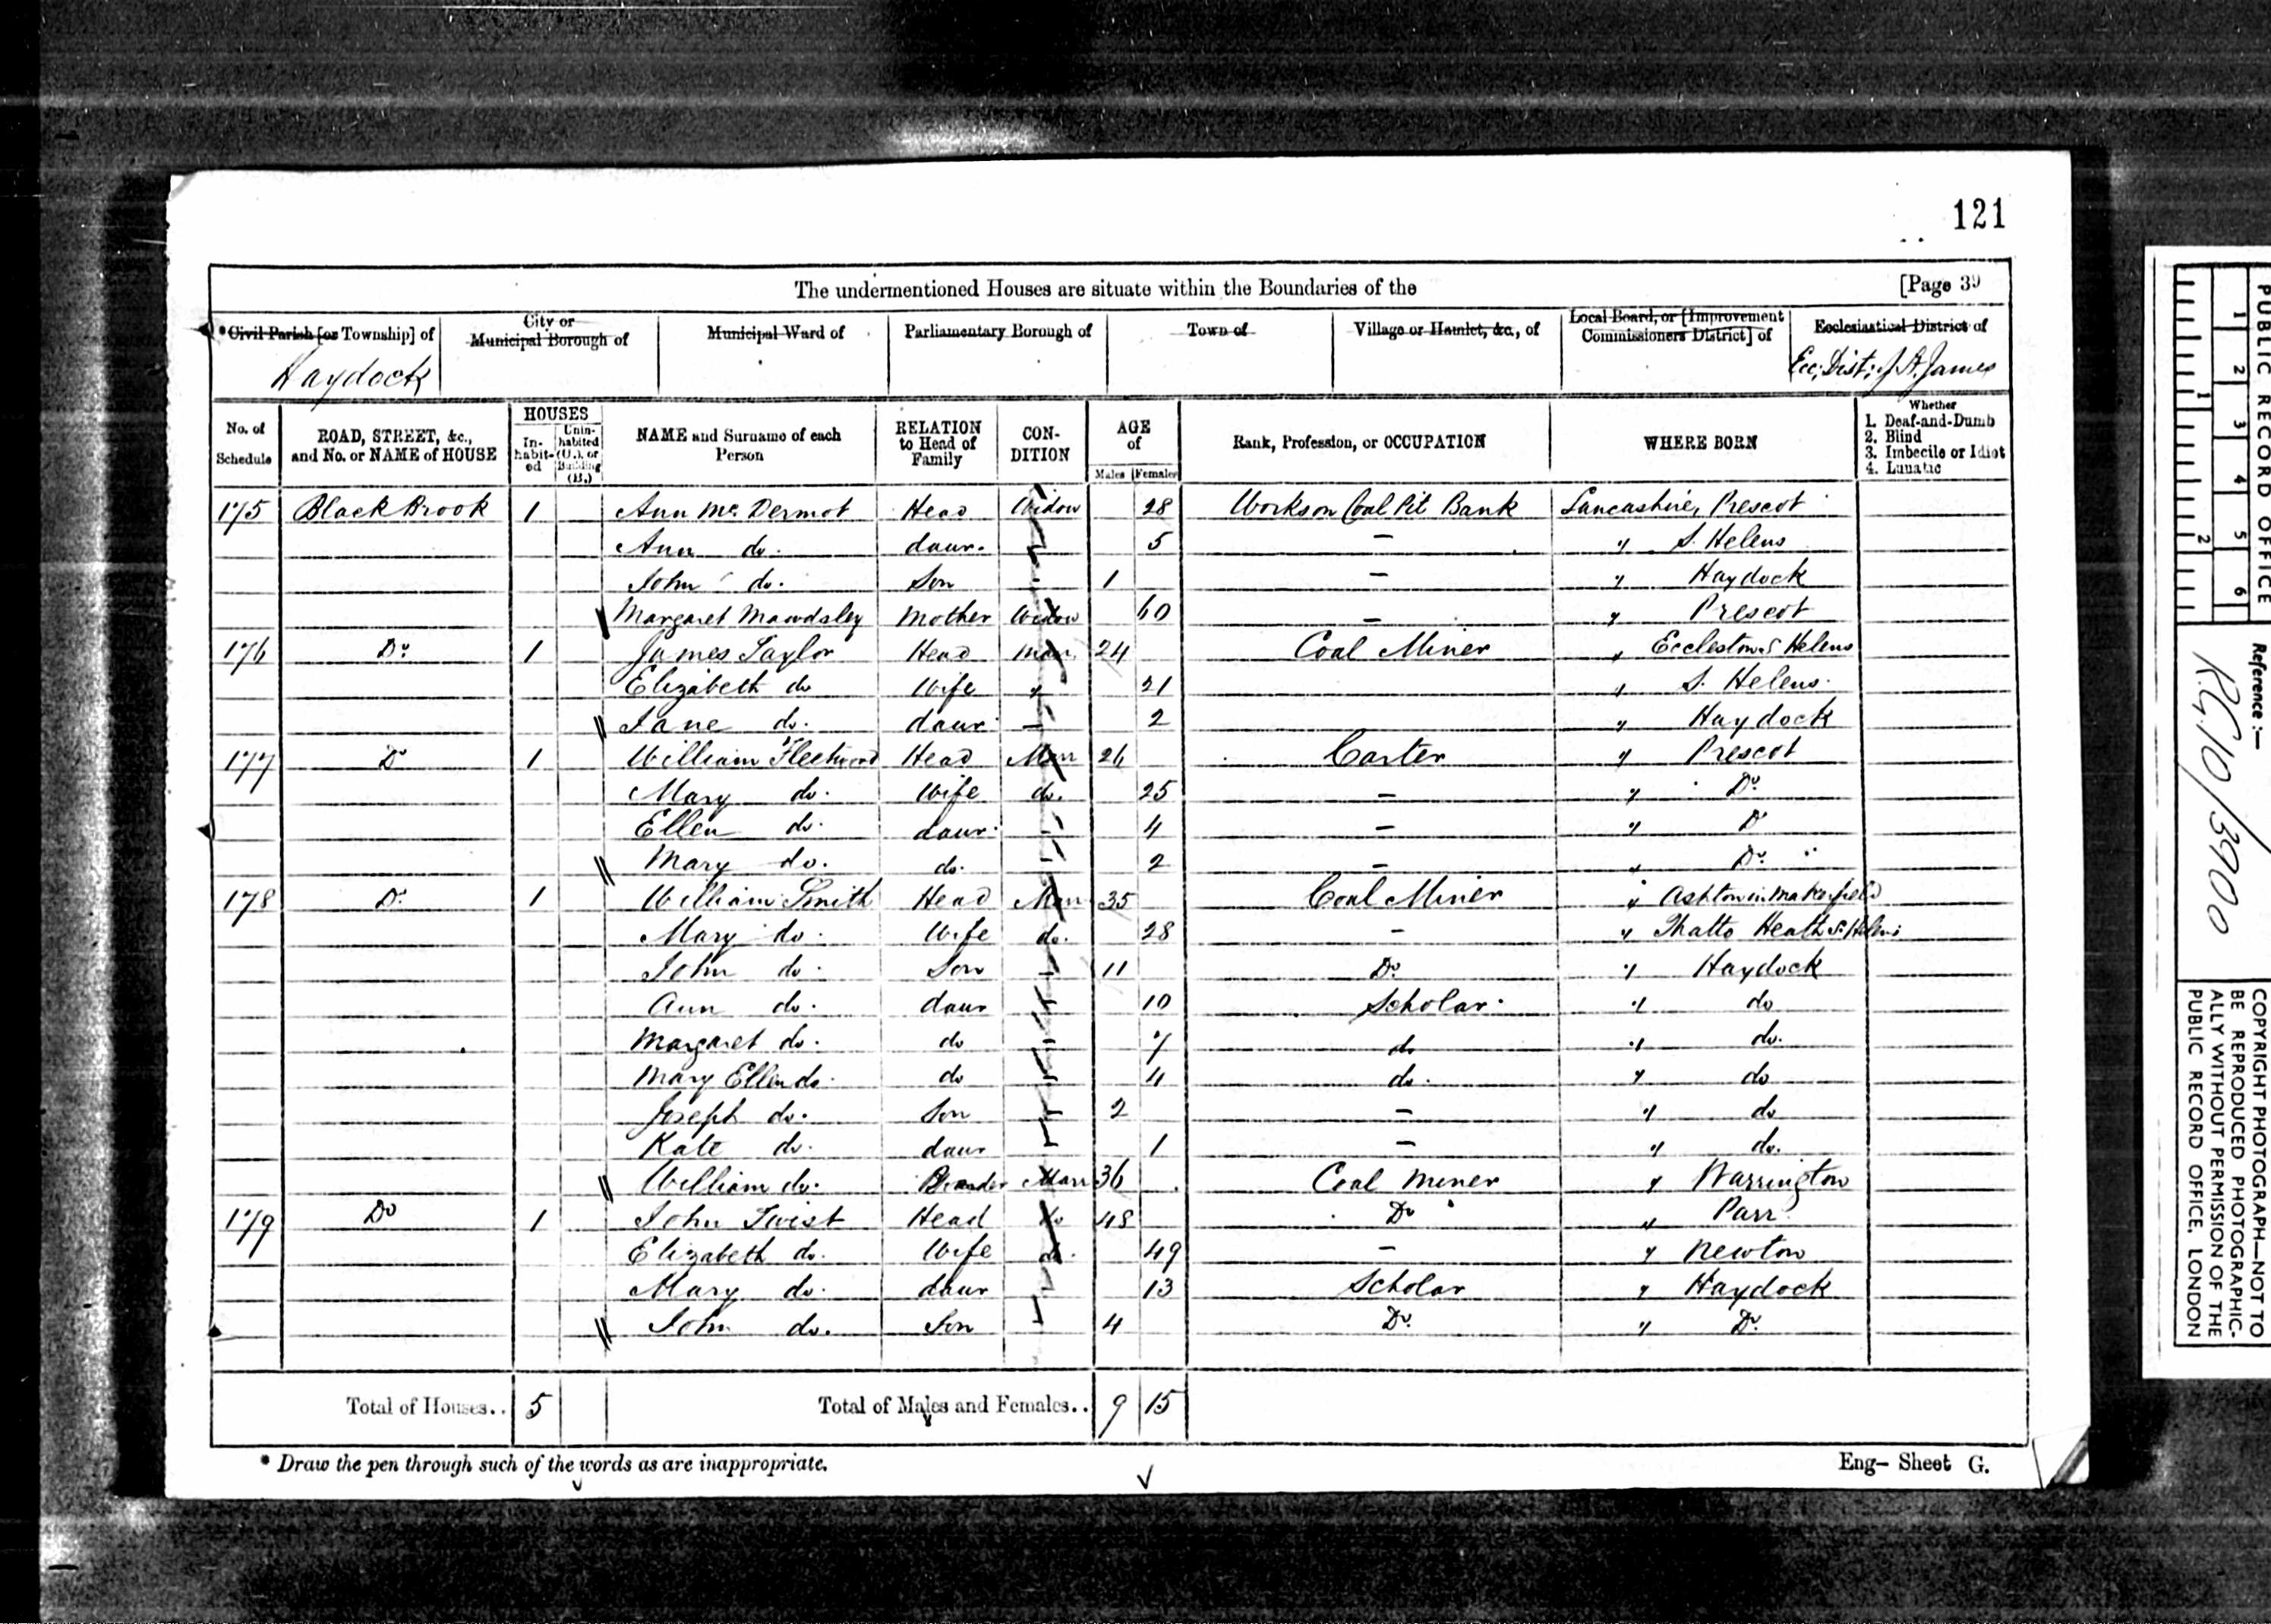 121
The undermentioned Houses are situate within the Boundaries of the [Page 39
*Civil Parish [or Township] of City or Municipal Borough of Municipal Ward of Parliamentary Borough of Town of Village or Hamlet, &c., of Local Board, or [Improvement Commissioners District] of Ecclesiastical District of
Haydock Ecc; Dist; of St. James
No. of Schedule ROAD, STREET, &c., and No. or NAME of HOUSE HOUSES In-habit-ed Unin-habited (U.), or Building (B.) NAME and Surname of each Person RELATION to Head of Family CON-DITION AGE of Males Females Rank, Profession, or OCCUPATION WHERE BORN Whether 1. Deaf-and-Dumb 2. Blind 3. Imbecile or Idiot 4. Lunatic
175 Black Brook 1 Ann Mc Dermot Head Widow 28 Works on Coal Pit Bank Lancashire, Prescot
Ann do. daur. 5 – " S. Helens
John do. Son 1 – " Haydock
Margaret Mawdsley Mother Widow 60 – " Prescot
176 Do 1 James Taylor Head Marr. 24 Coal Miner " Eccleston S Helens
Elizabeth do Wife " 21 " S. Helens.
Jane do. daur. – 2 " Haydock
177 Do 1 William Fleetwood Head Marr 26 Carter " Prescot
Mary do. Wife do. 25 – " Do
Ellen do. daur. – 4 – " Do
Mary do. do. – 2 – " Do.
178 Do 1 William Smith Head Marr 35 Coal Miner " Ashton in Makerfield
Mary do. Wife do. 28 – " Thatto Heath S. Helens
John do. Son 11 Do " Haydock
Ann do. daur 10 Scholar. " do
Margaret do. do 7 do " do.
Mary Ellen do. do 4 do. " do
Joseph do. Son 2 – " do
Kate do. daur 1 – " do.
William do. Boarder Marr 36 Coal Miner " Warrington
179 Do 1 John Twist Head do 48 Do " Parr
Elizabeth do. Wife do. 49 – " Newton
Mary do. daur 13 Scholar " Haydock
John do. Son 4 Do. " Do.
Total of Houses.. 5 Total of Males and Females.. 9 15
* Draw the pen through such of the words as are inappropriate.
Eng– Sheet G.
PUBLIC RECORD OFFICE
1 2 3 4 5 6
1 2
Reference :—
RG 10/3900
COPYRIGHT PHOTOGRAPH—NOT TO
BE REPRODUCED PHOTOGRAPHIC-
ALLY WITHOUT PERMISSION OF THE
PUBLIC RECORD OFFICE, LONDON